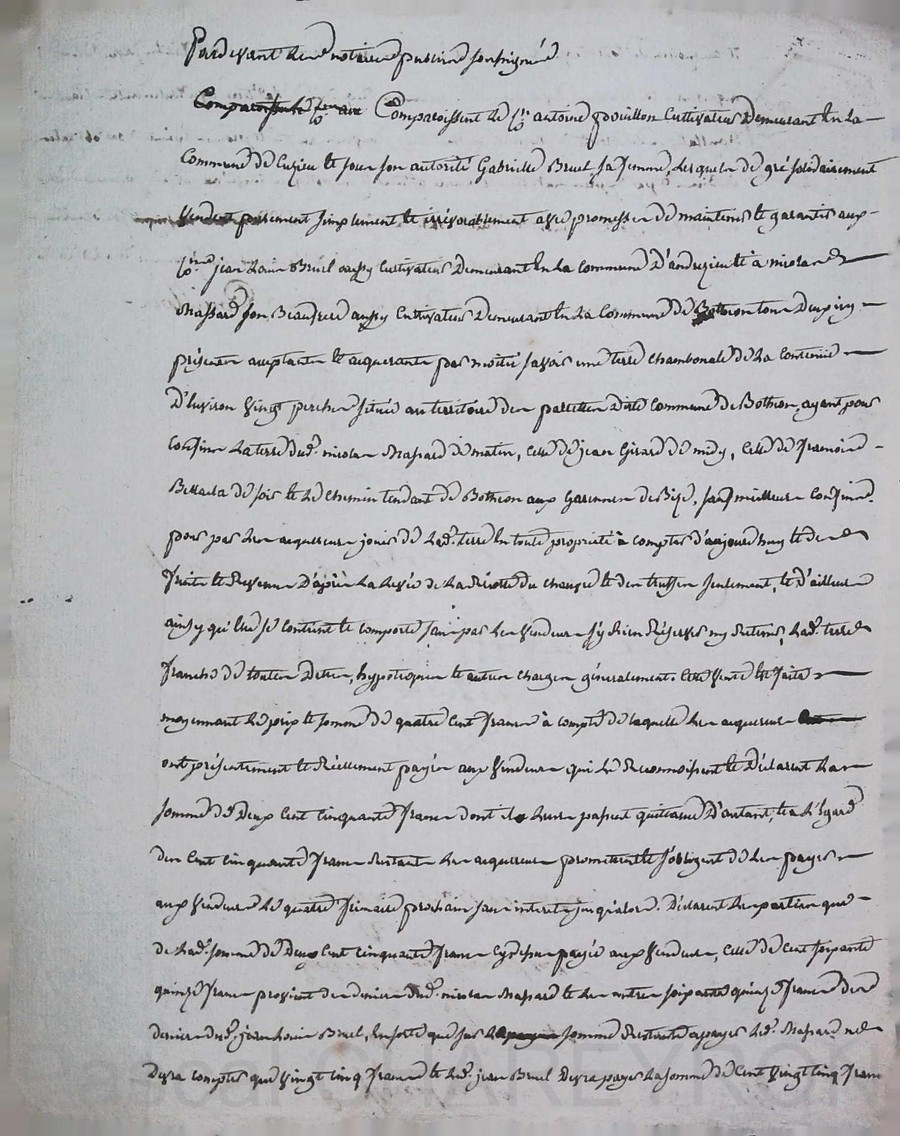 Pardevant le notaire public soussigné
Comparoissent le Cen antoine pouillon Cultivateur Demeurant En la
Commune de Cuzieu Et sous son autorité Gabrielle Bruel sa femme, lesquels de gré solidairement
Vendent purement simplement Et irrévocablement avec promesse de maintenir Et garantir aux
jean Louis Bruel aussy Cultivateur Demeurant En la Commune D'andrezieu Et à nicolas
Massard son Beaufrere aussy Cultivateur Demeurant En la Commune de Botheon tous Deux icy
présents acceptants Et acquerants par moitié savoir une terre chambonale de La Contenue
D'Environ Vingt perches située au territoire des Dite Commune de Botheon, ayant pour
confins La terre dud. nicolas Massard de matin, Celle de jean Girard de midy, Celle de francois
de soir Et Le Chemin tendant de Botheon aux Garennes de Bize, sauf meilleurs Confins.
pour par Les acquereurs jouir de Lad. terre En toute propriété à compter d'aujourd'huy Et des
fruits Et Revenus D'après La Levée de La Récolte du chanvre Et des truffes seulement, Et d'ailleurs
ainsy qu'Elle se Contient Et comporte sans par Les Vendeurs s'y Rien Réserver ny Retenir, Lad. terre
franche de toutes Dettes, hypoteques Et autres charges généralement. Cette Vente Est faite
moyennant Le prix Et somme de quatre Cent francs à compte de laquelle Les acquereurs
ont présentement Et Réellement payés aux Vendeurs qui Le Reconnoissent Et Déclarent La
somme de Deux Cent Cinquante francs dont ils Leurs passent quittance D'autant, Et a L'Egard
des Cent Cinquante francs Restants Les acquereurs promettent Et s'obligent de Les payer
aux Vendeurs Le quatre frimaire prochain sans interets jusqu'alors. Déclarent Les parties que
de Lad. somme de Deux Cent Cinquante francs Cydessus payée aux Vendeurs, Celle de Cent soixante
quinze francs provient des deniers dud. nicolas Massard Et Les autres soixante quinze francs des
deniers dud. jean Louis Bruel, En sorte que sur La somme Restante a payer Led. Massard ne
Devra compter que Vingt Cinq francs Et Led. jean Bruel Devra payer La somme de Cent Vingt Cinq francs